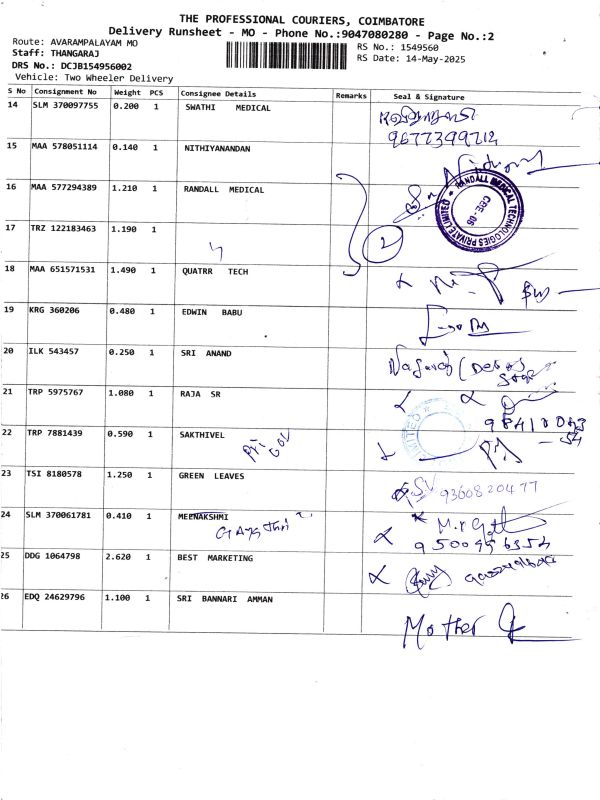 THE PROFESSIONAL COURIERS, COIMBATORE
Delivery Runsheet - MO - Phone No.:9047080280 - Page No.:2
Route: AVARAMPALAYAM MO
Staff: THANGARAJ
DRS No.: DCJB154956002
Vehicle: Two Wheeler Delivery
RS No.: 1549560
RS Date: 14-May-2025
S No Consignment No Weight PCS Consignee Details Remarks Seal & Signature
14 SLM 370097755 0.200 1 SWATHI MEDICAL
9677399712
15 MAA 578051114 0.140 1 NITHIYANANDAN
16 MAA 577294389 1.210 1 RANDALL MEDICAL
RANDALL MEDICAL TECHNOLOGIES PRIVATE LIMITED
CBE-06
17 TRZ 122183463 1.190 1
2
18 MAA 651571531 1.490 1 QUATRR TECH
19 KRG 360206 0.480 1 EDWIN BABU
20 ILK 543457 0.250 1 SRI ANAND
21 TRP 5975767 1.080 1 RAJA SR
22 TRP 7881439 0.590 1 SAKTHIVEL
23 TSI 8180578 1.250 1 GREEN LEAVES
9360820477
24 SLM 370061781 0.410 1 MEENAKSHMI
Gayathri
25 DDG 1064798 2.620 1 BEST MARKETING
26 EDQ 24629796 1.100 1 SRI BANNARI AMMAN
Mother